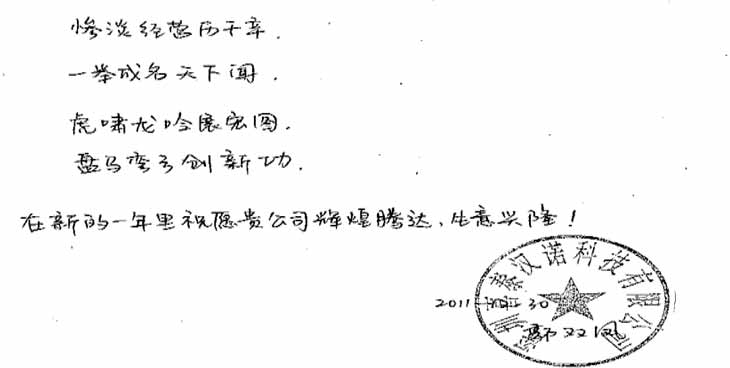 惨淡经营历千辛.
一举成名天下闻.
虎啸龙吟展宏图.
盘马弯弓创新功.
在新的一年里祝愿贵公司辉煌腾达,生意兴隆!
深圳市秦汉诺科技有限公司
2011 30